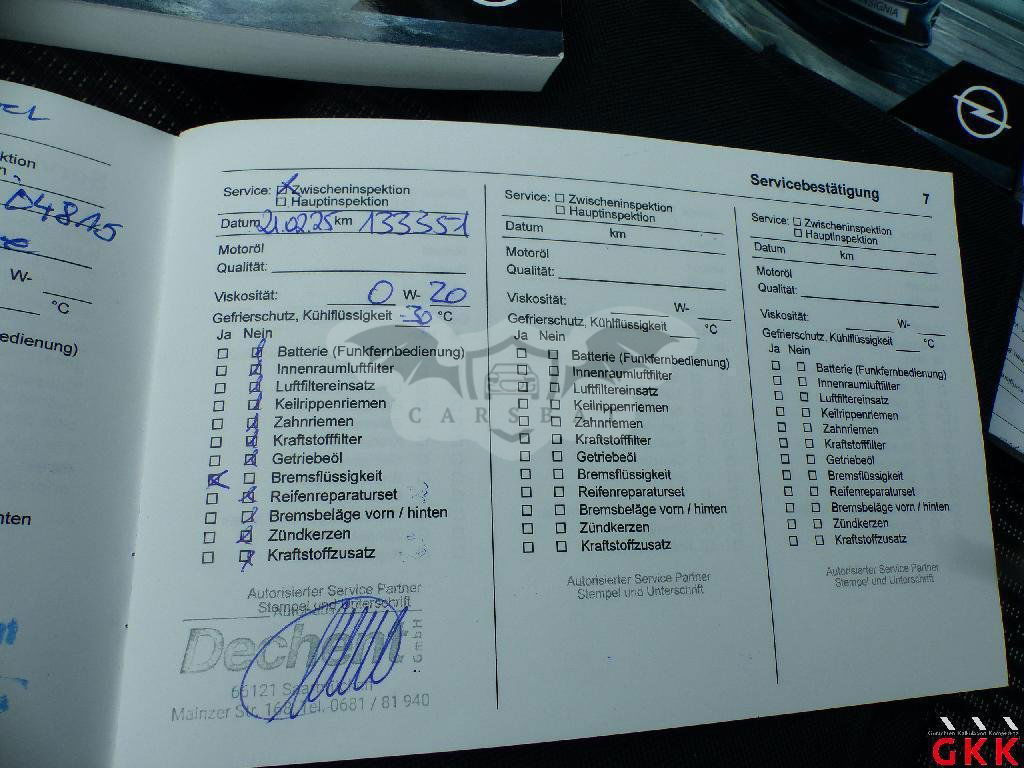 INSIGNIA
ktion
W-
°C
edienung)
nten
Servicebestätigung 7
Service: Zwischeninspektion
Hauptinspektion
Datum 21.02.25 km 133351
Motoröl
Qualität:
Viskosität: 0 W- 20
Gefrierschutz, Kühlflüssigkeit -30 °C
Ja Nein
Batterie (Funkfernbedienung)
Innenraumluftfilter
Luftfiltereinsatz
Keilrippenriemen
Zahnriemen
Kraftstofffilter
Getriebeöl
Bremsflüssigkeit
Reifenreparaturset
Bremsbeläge vorn / hinten
Zündkerzen
Kraftstoffzusatz
Autorisierter Service Partner
Stempel und Unterschrift
Dechent GmbH
66121 Saarbrücken
Mainzer Str. 168, Tel. 0681 / 81 940
Service: Zwischeninspektion
Hauptinspektion
Datum km
Motoröl
Qualität:
Viskosität: W-
Gefrierschutz, Kühlflüssigkeit °C
Ja Nein
Batterie (Funkfernbedienung)
Innenraumluftfilter
Luftfiltereinsatz
Keilrippenriemen
Zahnriemen
Kraftstofffilter
Getriebeöl
Bremsflüssigkeit
Reifenreparaturset
Bremsbeläge vorn / hinten
Zündkerzen
Kraftstoffzusatz
Autorisierter Service Partner
Stempel und Unterschrift
Service: Zwischeninspektion
Hauptinspektion
Datum km
Motoröl
Qualität:
Viskosität: W-
Gefrierschutz, Kühlflüssigkeit °C
Ja Nein
Batterie (Funkfernbedienung)
Innenraumluftfilter
Luftfiltereinsatz
Keilrippenriemen
Zahnriemen
Kraftstofffilter
Getriebeöl
Bremsflüssigkeit
Reifenreparaturset
Bremsbeläge vorn / hinten
Zündkerzen
Kraftstoffzusatz
Autorisierter Service Partner
Stempel und Unterschrift
GKK